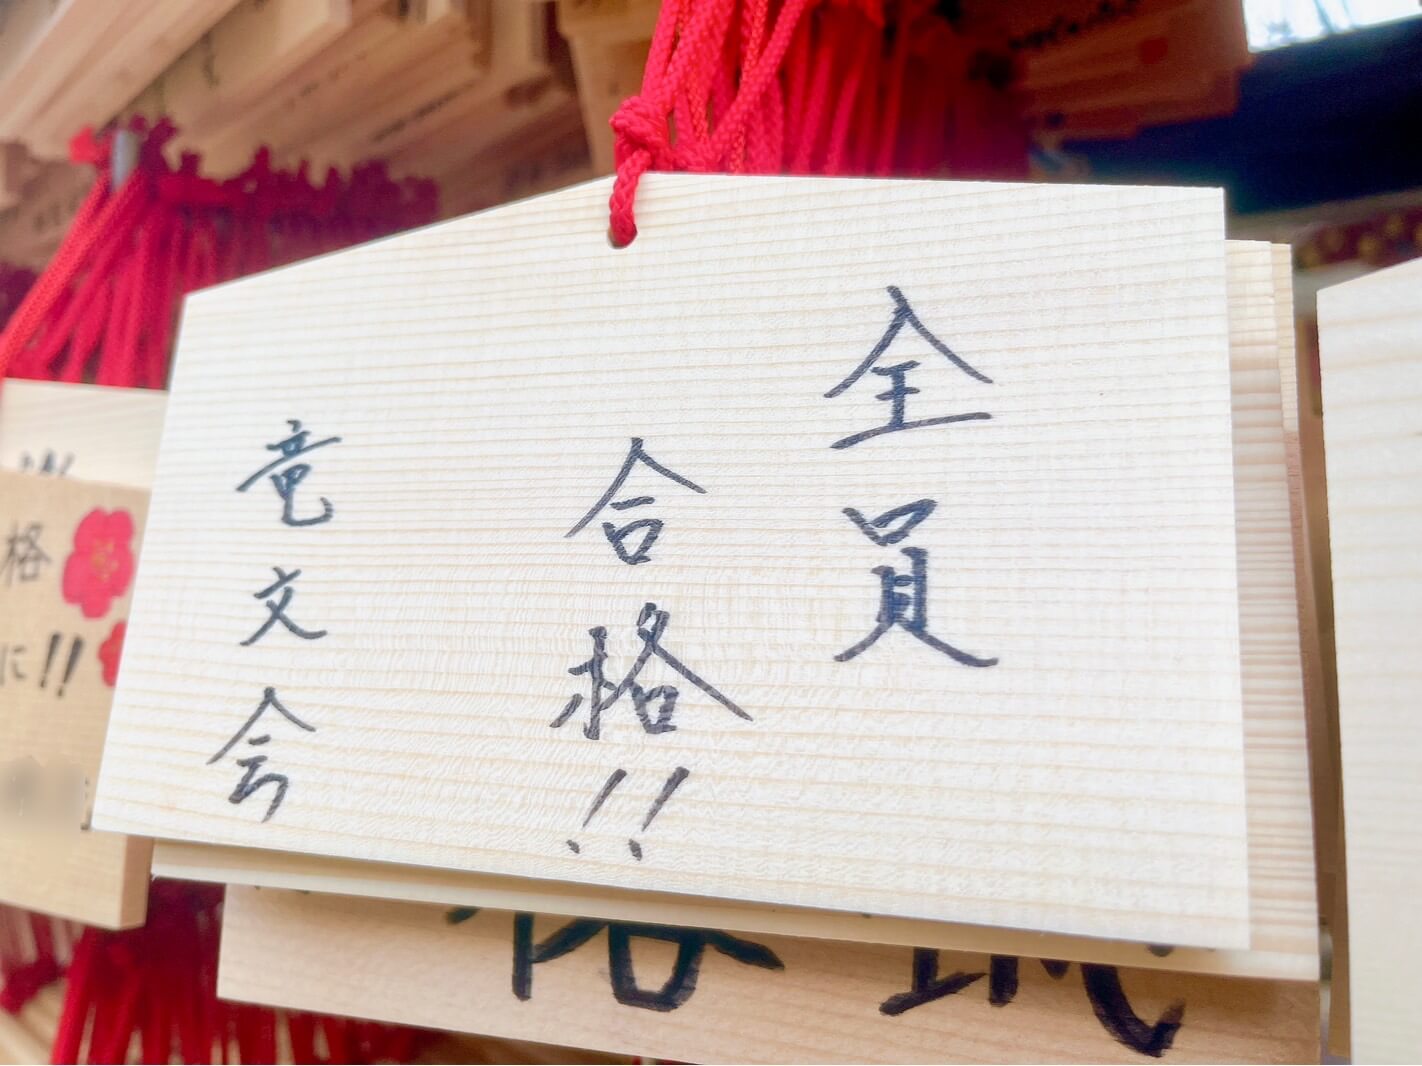 全員
合格!!
竜文会
格
に!!